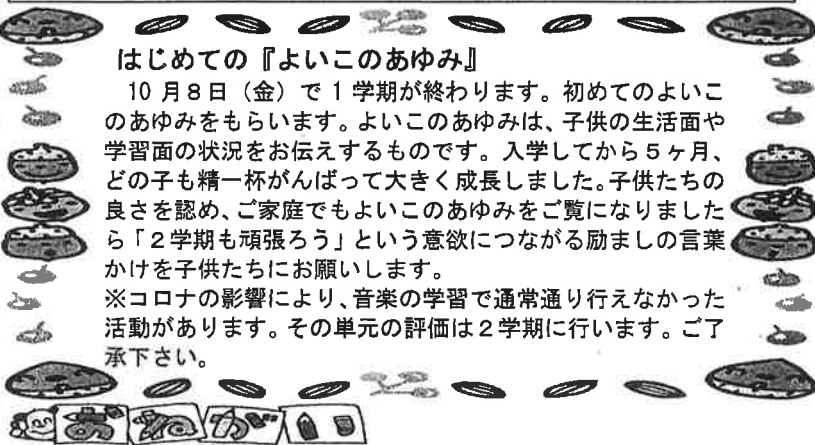 はじめての『よいこのあゆみ』
10月8日（金）で1学期が終わります。初めてのよいこ
のあゆみをもらいます。よいこのあゆみは、子供の生活面や
学習面の状況をお伝えするものです。入学してから5ヶ月、
どの子も精一杯がんばって大きく成長しました。子供たちの
良さを認め、ご家庭でもよいこのあゆみをご覧になりました
ら「2学期も頑張ろう」という意欲につながる励ましの言葉
かけを子供たちにお願いします。
※コロナの影響により、音楽の学習で通常通り行えなかった
活動があります。その単元の評価は2学期に行います。ご了
承下さい。
おねがい